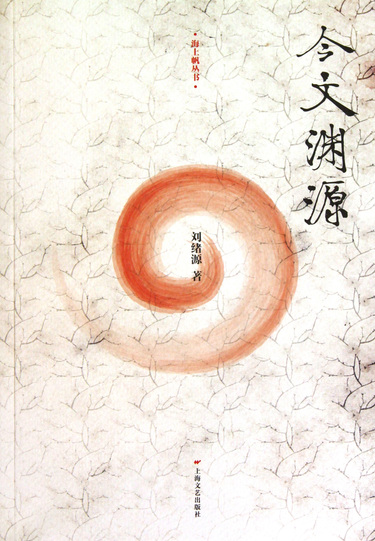 今文渊源
·海上帆丛书·
刘绪源 著
上海文艺出版社